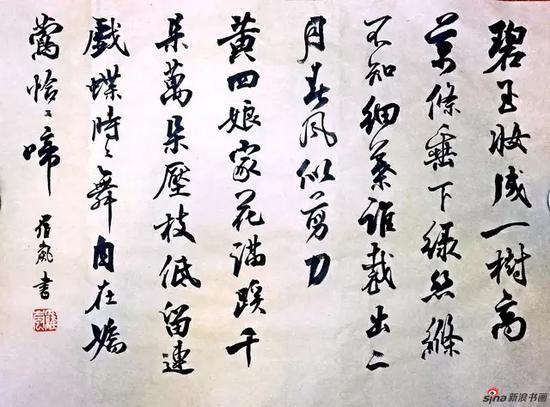 碧玉妝成一樹高
萬條垂下緑丝縧
不知細葉誰裁出二
月春風似剪刀
黄四娘家花满蹊千
朵萬朵壓枝低留連
戲蝶時々舞自在嬌
鶯恰々啼 書
sina新浪书画